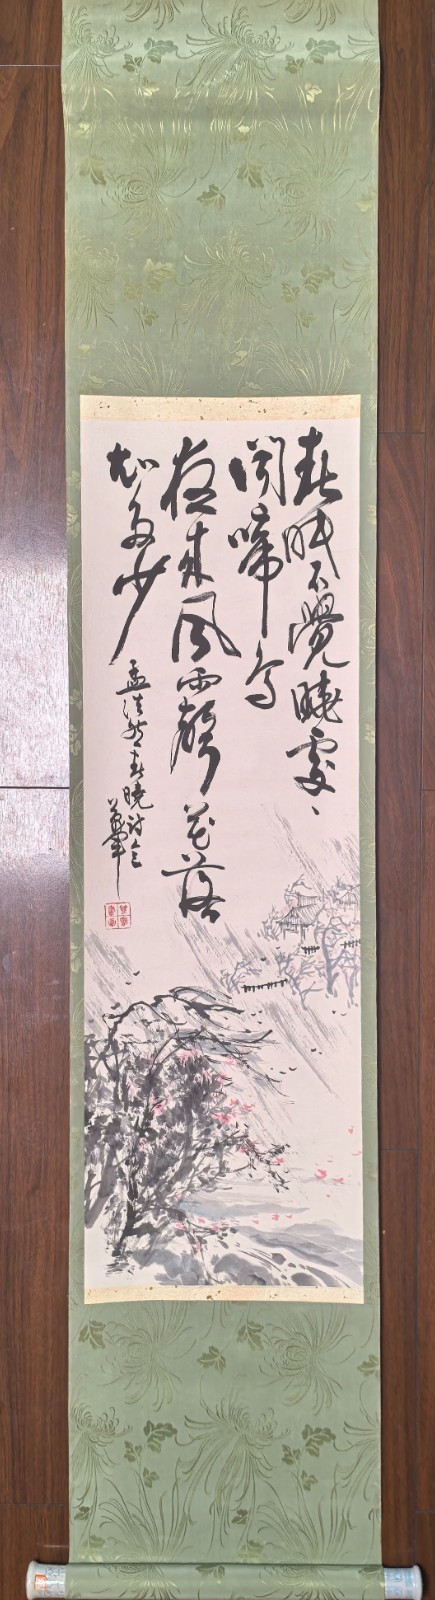 春眠不覺曉處々
聞啼鳥
夜来風雨聲花落
知多少
孟浩然春曉诗意